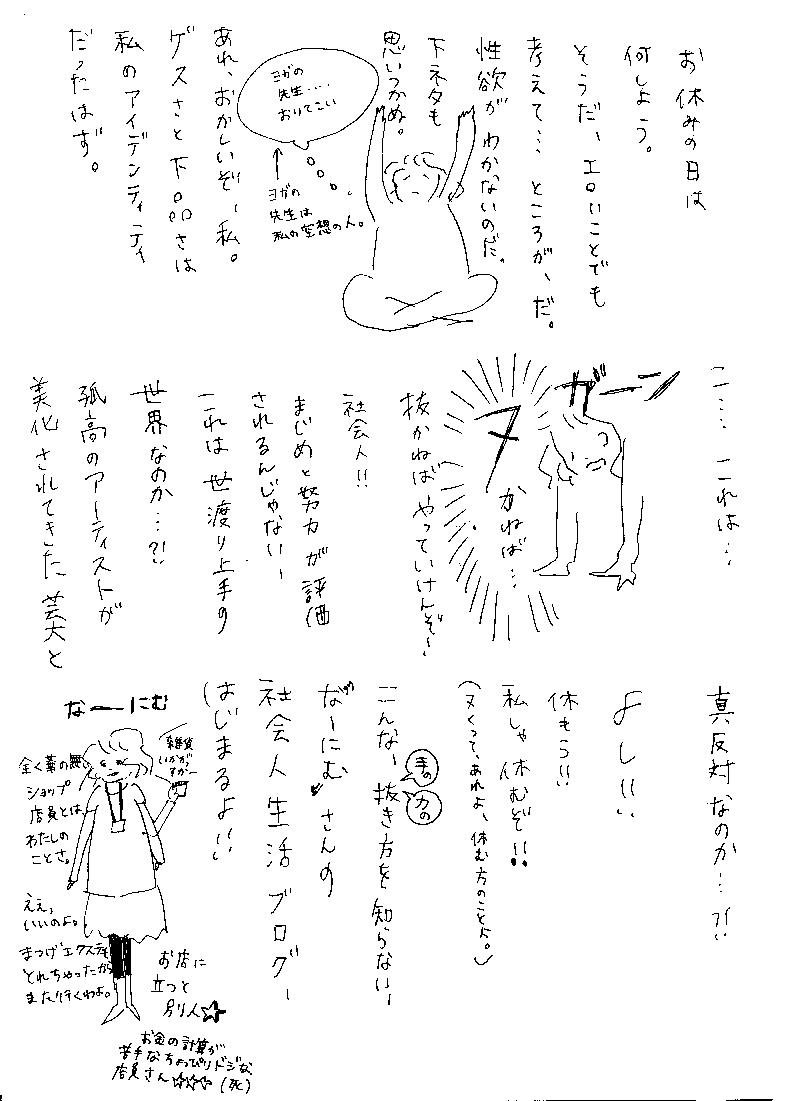 お休みの日は
何しよう。
そうだ、エロいことでも
考えて… ところが、だ。
性欲がわかないのだ。
下ネタも
思いつかぬ。
ヨガの
先生……
おりてこい
ヨガの
先生は
私の空想の人。
あれ、おかしいぞー私。
ゲスさと下品さは
私のアイデンティティ
だったはず。
こ… これは…
ガーン
ヌ
かねば…
抜かねばやっていけんぞー
社会人!!
まじめと努力が評価
されるんじゃないー
これは世渡り上手の
世界なのか…?!
孤高のアーティストが
美化されてきた芸大と
真反対なのか…?!
よし!!
休もう!!
私しゃ休むぞ!!
(ヌくって、あれよ、休む方のことよ。)
こんな、抜き方を知らない、
手の
力の
なーにむさんの
社会人生活ブログー
はじまるよ!!
なーにむ
雑貨
いかが
すかー
全く華の無い
ショップ
店員とは、
わたしの
ことさ。
ええ、
いいのよ。
まつげエクステ
とれちゃったから
また行くわよ。
お店に
立つと
別人☆
お金の計算が
苦手なちょっぴりドジな
店員さん☆☆☆(死)